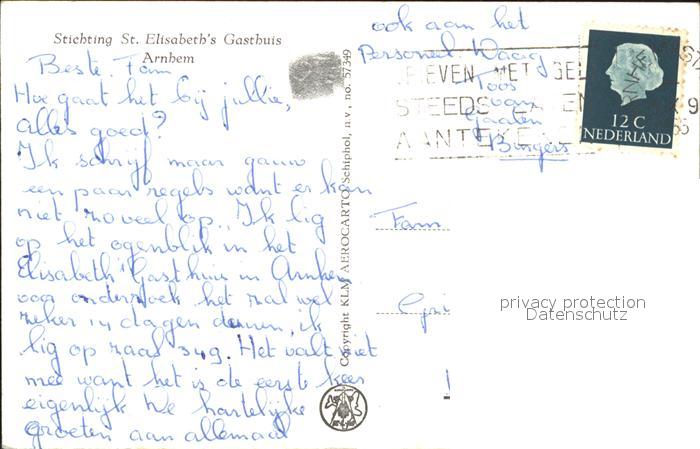 Stichting St. Elisabeth's Gasthuis
Arnhem
Beste Fam
Hoe gaat het bij jullie,
alles goed?
Ik schrijf maar gauw
een paar regels want er kan
niet zoveel op. Ik lig
op het ogenblik in het
Elisabeth Gasthuis in Arnhem
voor onderzoek het zal wel
zeker 14 dagen duren, ik
lig op zaal 349. Het valt niet
mee want het is de eerste keer
eigenlijk de hartelijke
groeten aan allemaal
Copyright KLM AEROCARTO/Schiphol, n.v., no. 57349
ook aan het
Personeel Waag
Toos
van
Gaalen
Burgers
BRIEVEN MET GEL
STEEDS
AANTEKE
12 C
NEDERLAND
Fam
privacy protection
Datenschutz